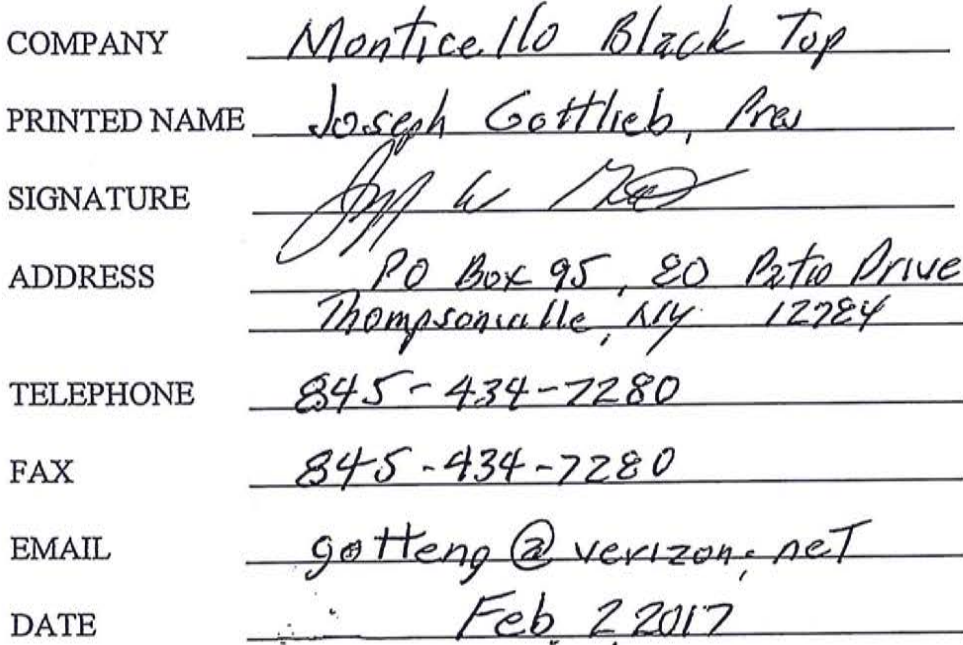 COMPANY Monticello Black Top
PRINTED NAME Joseph Gottlieb, Pres
SIGNATURE
ADDRESS PO Box 95, 80 Patio Drive
Thompsonville, NY 12784
TELEPHONE 845-434-7280
FAX 845-434-7280
EMAIL gotteng@verizon.net
DATE Feb 2 2017